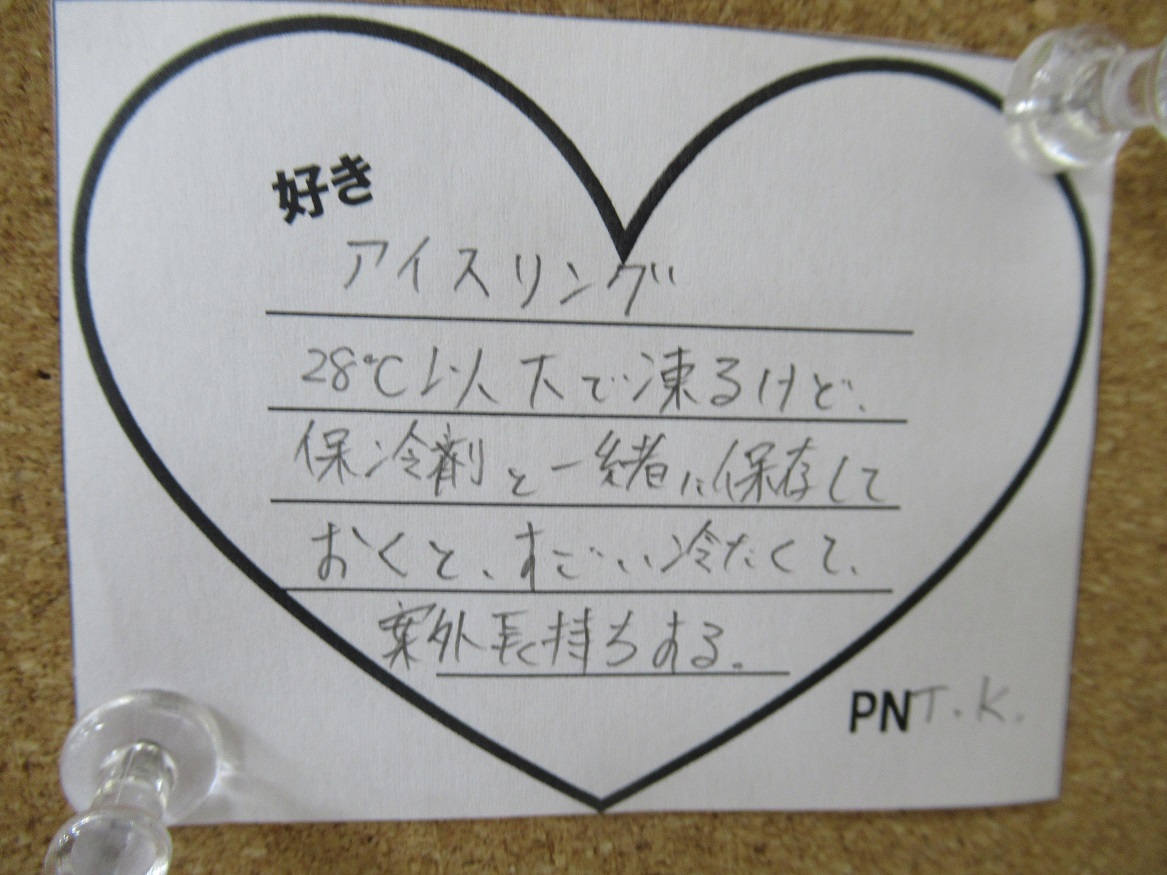 好き
アイスリング
28℃以下で凍るけど、
保冷剤と一緒に保存して
おくと、すごい冷たくて、
案外長持ちする。
PN T.K.